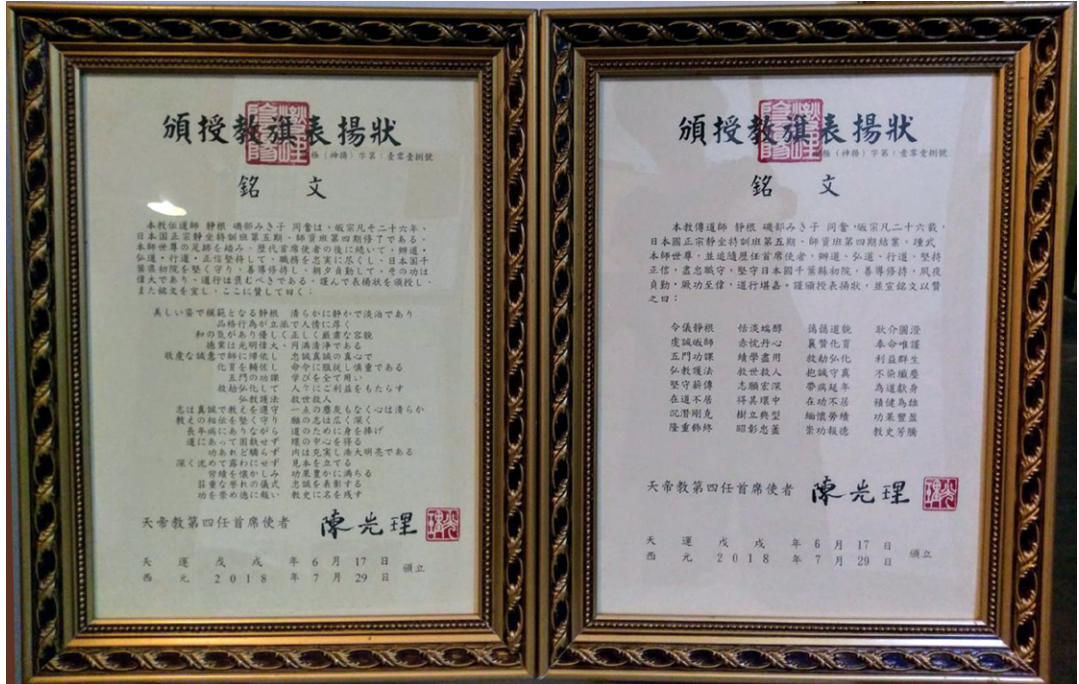 頒授教旗表揚狀
極（神揚）字第：壹零壹捌號
銘 文
本教伝道師 靜根 磯部みき子 同奮は、皈宗凡そ二十六年、
日本国正宗静坐特訓班第五期、師資班第四期修了である。
本師世尊の足跡を踏み、歴代首席使者の後に続いて、辦道・
弘道・行道、正信堅持して、職務を忠実に尽くし、日本国千
葉県初院を堅く守り、善導修持し、朝夕貞勤して、その功は
偉大であり、道行は褒むべきである。謹んで表揚状を頒授し、
また銘文を宣し、ここに賛して曰く：
美しい姿で模範となる静根 清らかに静かで淡泊であり
品格行為が立派で人情に厚く
和の気があり優しく正しく厳粛な容貌
徳業は光明偉大、円満清浄である
敬虔な誠意で師に帰依し 忠誠真誠の真心で
化育を輔佐し 命令に服従し慎重である
五門の功課 学びを全て用い
救劫弘化して 人々にご利益をもたらす
弘教護法 救世救人
志は真誠で教えを遵守 一点の塵垢もなく心は清らか
教えの相伝を堅く守り 願の志は広く深く
長年病にありながら 道のために身を捧げ
道にあって固執せず 環の中心を得る
功あれど驕らず 内は充実し浩大明亮である
深く沈めて露わにせず 見本を立てる
労績を懐かしみ 功果豊かに満ちる
荘重な誉れの儀式 忠誠を表彰する
功を崇め徳に報い 教史に名を残す
天帝教第四任首席使者 陳光理
天 運 戊 戌 年 6 月 17 日
西 元 2 0 1 8 年 7 月 29 日 頒立
頒授教旗表揚狀
極（神揚）字第：壹零壹捌號
銘 文
本教傳道師 靜根 磯部みき子 同奮，皈宗凡二十六載，
日本國正宗靜坐特訓班第五期、師資班第四期結業，踵武
本師世尊，並追隨歷任首席使者，辦道、弘道、行道，堅持
正信，盡忠職守，堅守日本國千葉縣初院，善導修持，夙夜
貞勤，厥功至偉，道行堪嘉。謹頒授表揚狀，並宣銘文以贊
之曰：
令儀靜根 恬淡端醇 藹藹道貌 耿介圓澄
虔誠皈師 赤忱丹心 襄贊化育 奉命唯謹
五門功課 績學盡用 救劫弘化 利益群生
弘教護法 救世救人 抱誠守真 不染纖塵
堅守薪傳 志願宏深 帶病延年 為道獻身
在道不居 得其環中 在功不居 積健為雄
沉潛剛克 樹立典型 緬懷勞績 功果豐盈
隆重飾終 昭彰忠藎 崇功報德 教史芳騰
天帝教第四任首席使者 陳光理
天 運 戊 戌 年 6 月 17 日
西 元 2 0 1 8 年 7 月 29 日 頒立